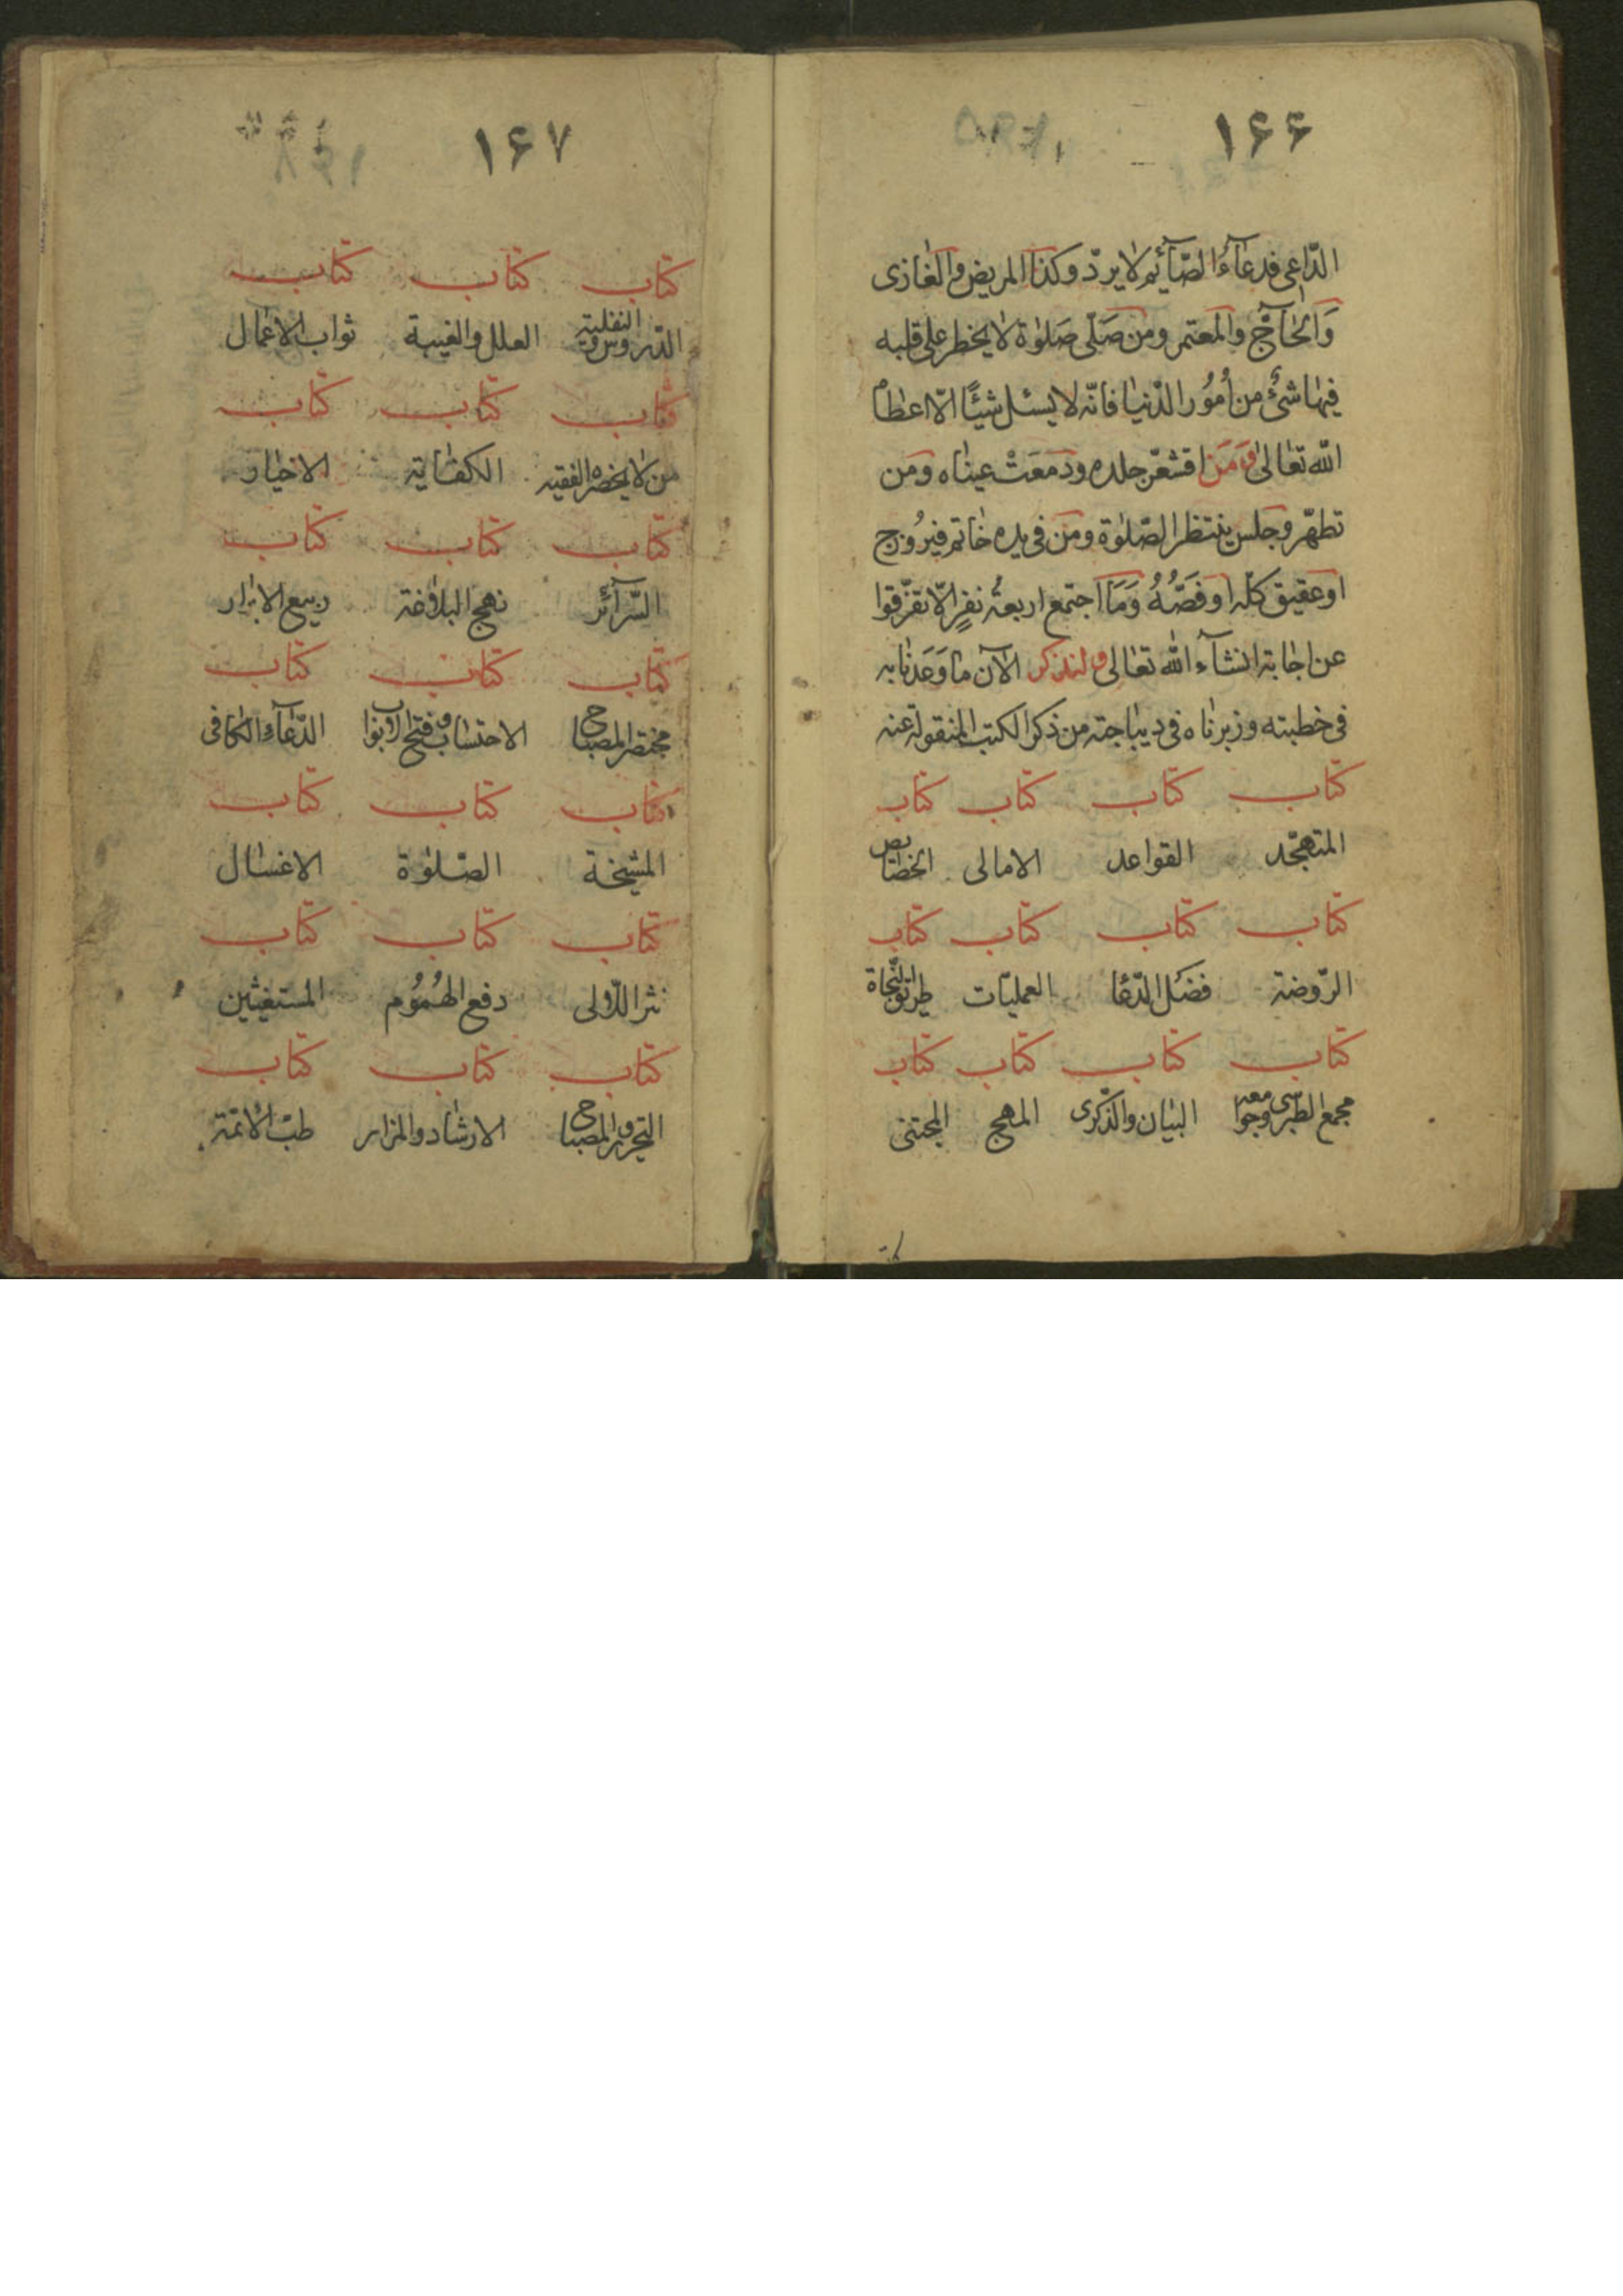 ۱۶۶
الدّاعى فدعآءُ الصّآئم لا يردّ وكذا المريض والغازى
وَالحآجّ والمعتمر ومن صَلّى صَلوٰة لا يخطر على قلبه
فيها شئ من اُمُور الدّنيا فانّه لا يسئل شيئًا الّا اعطاه
اللّه تعالى وَمَن اقشعّر جلده ودَمعَتْ عيناه ومن
تطهّر وجلس ينتظر الصّلوٰة ومن فى يده خاتم فيرُوزج
او عقيق كلّه او فَصُّهُ وَمَا اجتمع اربعة نفرٍ الّا تفرّقوا
عن اجابة انشآء اللّه تعالى ولنذكر الآن ما وَعَدنا به
فى خطبته وزبرناه فى ديباجته من ذكر الكتب المنقولة عنه
كتاب كتاب كتاب كتاب
المتهجّد القواعد الامالى الخصايص
كتاب كتاب كتاب كتاب
الرّوضة فضل الدّعا العمليّات طريق النّجاة
كتاب كتاب كتاب كتاب
مجمع الطبرسى وجوامعه البيان والذّكرى المهج المجتنى
۱۶۷
كتاب كتاب كتاب
الدّروس والنفلية العلل والغيبة ثواب الاعمال
كتاب كتاب كتاب
من لا يحضره الفقيه الكفاية الاخيار
كتاب كتاب كتاب
السّرآئر نهج البلاغة ربيع الابرار
كتاب كتاب كتاب
مختصر المصباح الاحتساب وفتح الابواب الدّعآء والكافى
كتاب كتاب كتاب
المشيخة الصّلوٰة الاغسال
كتاب كتاب كتاب
نثر اللّئالى دفع الهُمُوم المستغيثين
كتاب كتاب كتاب
التحرير والمصباح الارشاد والمزار طبّ الائمّة